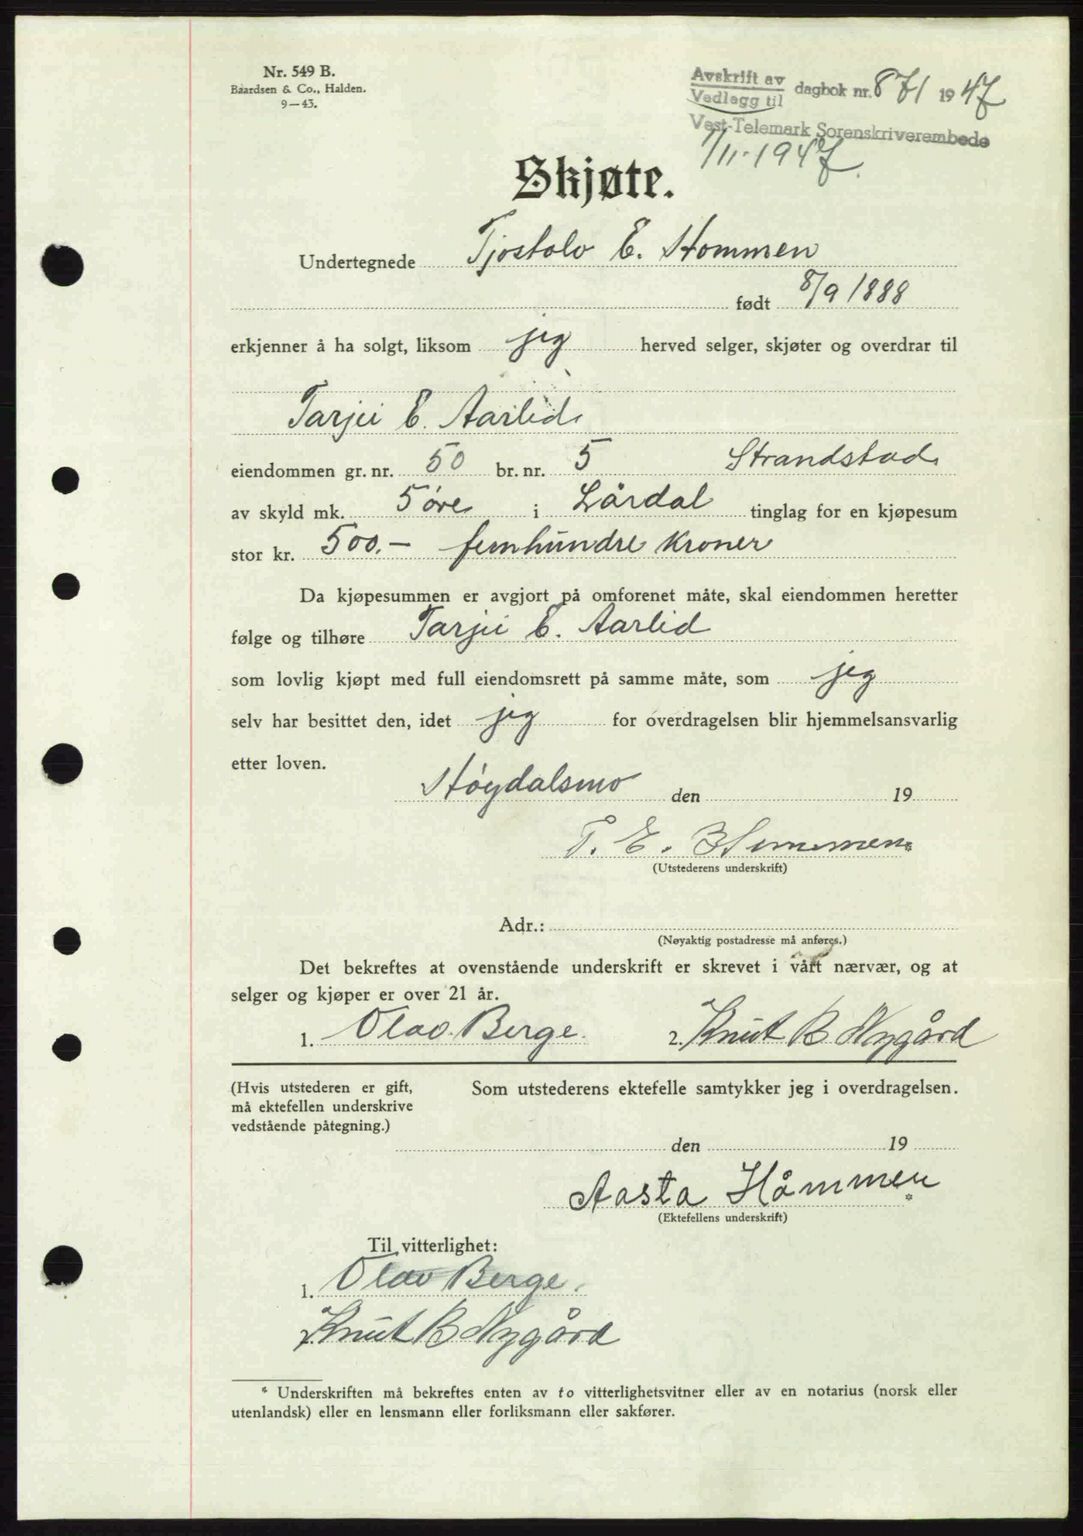 Nr. 549 B.
Baardsen & Co., Halden.
9—43.
Avskrift av
Vedlegg til
dagbok nr. 871 1947
Vest-Telemark Sorenskriverembede
1/11-1947.
Skjøte.
Undertegnede Tjostolv E. Hommen
født 8/9 1888
erkjenner å ha solgt, liksom jeg herved selger, skjøter og overdrar til
Tarjei E. Aarlid
eiendommen gr. nr. 50 br. nr. 5 Strandstad
av skyld mk. 5 øre i Lårdal tinglag for en kjøpesum
stor kr. 500.- femhundre kroner
Da kjøpesummen er avgjort på omforenet måte, skal eiendommen heretter
følge og tilhøre Tarjei E. Aarlid
som lovlig kjøpt med full eiendomsrett på samme måte, som jeg
selv har besittet den, idet jeg for overdragelsen blir hjemmelsansvarlig
etter loven.
Høydalsmo den 19
T. E. Hommen*
(Utstederens underskrift)
Adr.:
(Nøyaktig postadresse må anføres.)
Det bekreftes at ovenstående underskrift er skrevet i vårt nærvær, og at
selger og kjøper er over 21 år.
1. Olav Berge. 2. Knut B. Nygård
(Hvis utstederen er gift, Som utstederens ektefelle samtykker jeg i overdragelsen.
må ektefellen underskrive
vedstående påtegning.)
den 19
Aasta Håmmen*
(Ektefellens underskrift)
Til vitterlighet:
1. Olav Berge.
2. Knut B. Nygård
* Underskriften må bekreftes enten av to vitterlighetsvitner eller av en notarius (norsk eller
utenlandsk) eller en lensmann eller forliksmann eller sakfører.